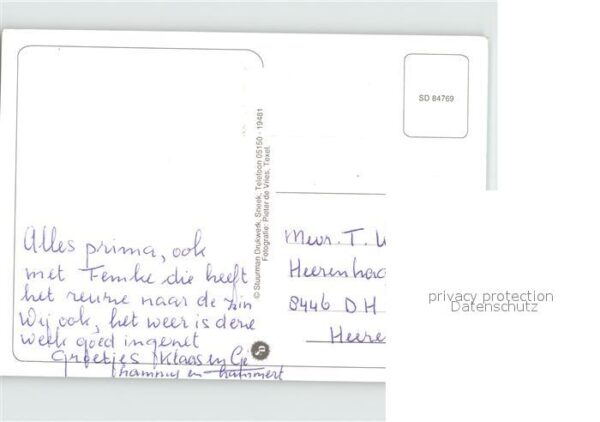 Alles prima, ook
met Femke die heeft
het reuze naar de zin
Wij ook, het weer is deze
week goed ingezet
Groetjes Klaas en Gé
hammus en hammert
© Stuurman Drukwerk, Sneek, Telefoon 05150 - 19481
Fotografie: Pieter de Vries, Texel.
SD 84769
Mevr. T. W
Heerenha
8446 DH
Heere
privacy protection
Datenschutz